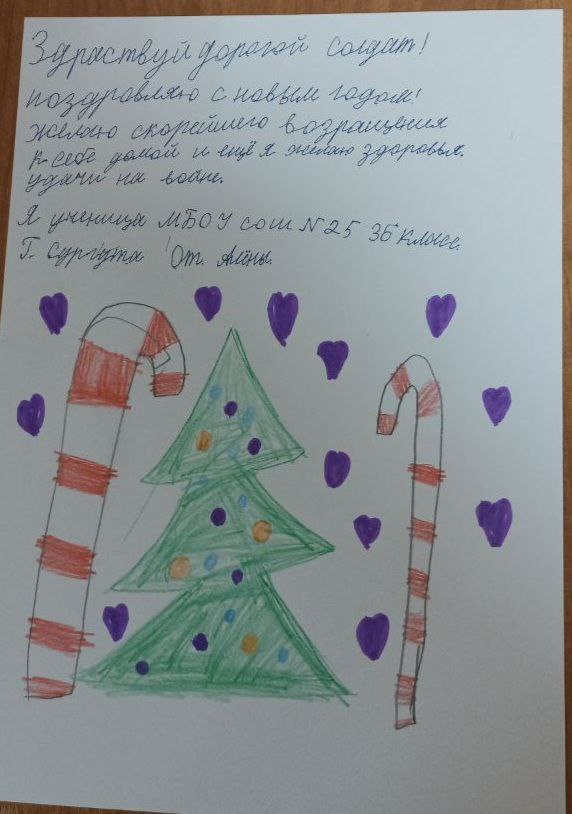 Здраствуй дорогой солдат!
поздровляю с новым годом!
желаю скорейшего возращения
к себе домой и ещё я желаю здоровья.
удачи на войне.
Я ученица МБОУ сош N25 3Б класс.
Г. Сургута От. Алёны.